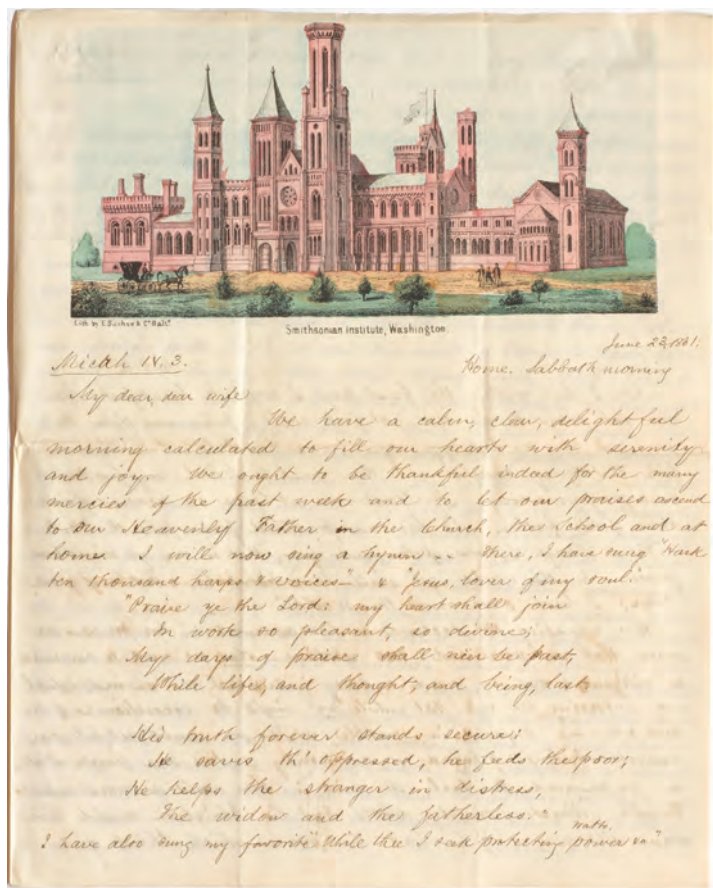 Lith by E. Sachse & Co. Balto.
Smithsonian institute, Washington.
June 23, 1861.
Micah IV. 3.
Home. Sabbath morning
My dear, dear wife
We have a calm, clear, delightful
morning calculated to fill our hearts with serenity
and joy. We ought to be thankful indeed for the many
mercies of the past week and to let our praises ascend
to our Heavenly Father in the Church, the School and at
home. I will now sing a hymn -- there, I have sung "Hark
ten thousand harps & voices" & "Jesus, lover of my soul."
"Praise ye the Lord: my heart shall join
In work so pleasant, so divine;
My days of praise shall ne'er be past,
While life, and thought, and being, last,
His truth forever stands secure:
He saves th' oppressed, he feeds the poor;
He helps the stranger in distress,
The widow and the fatherless."
I have also sung my favorite "While thee I seek protecting power